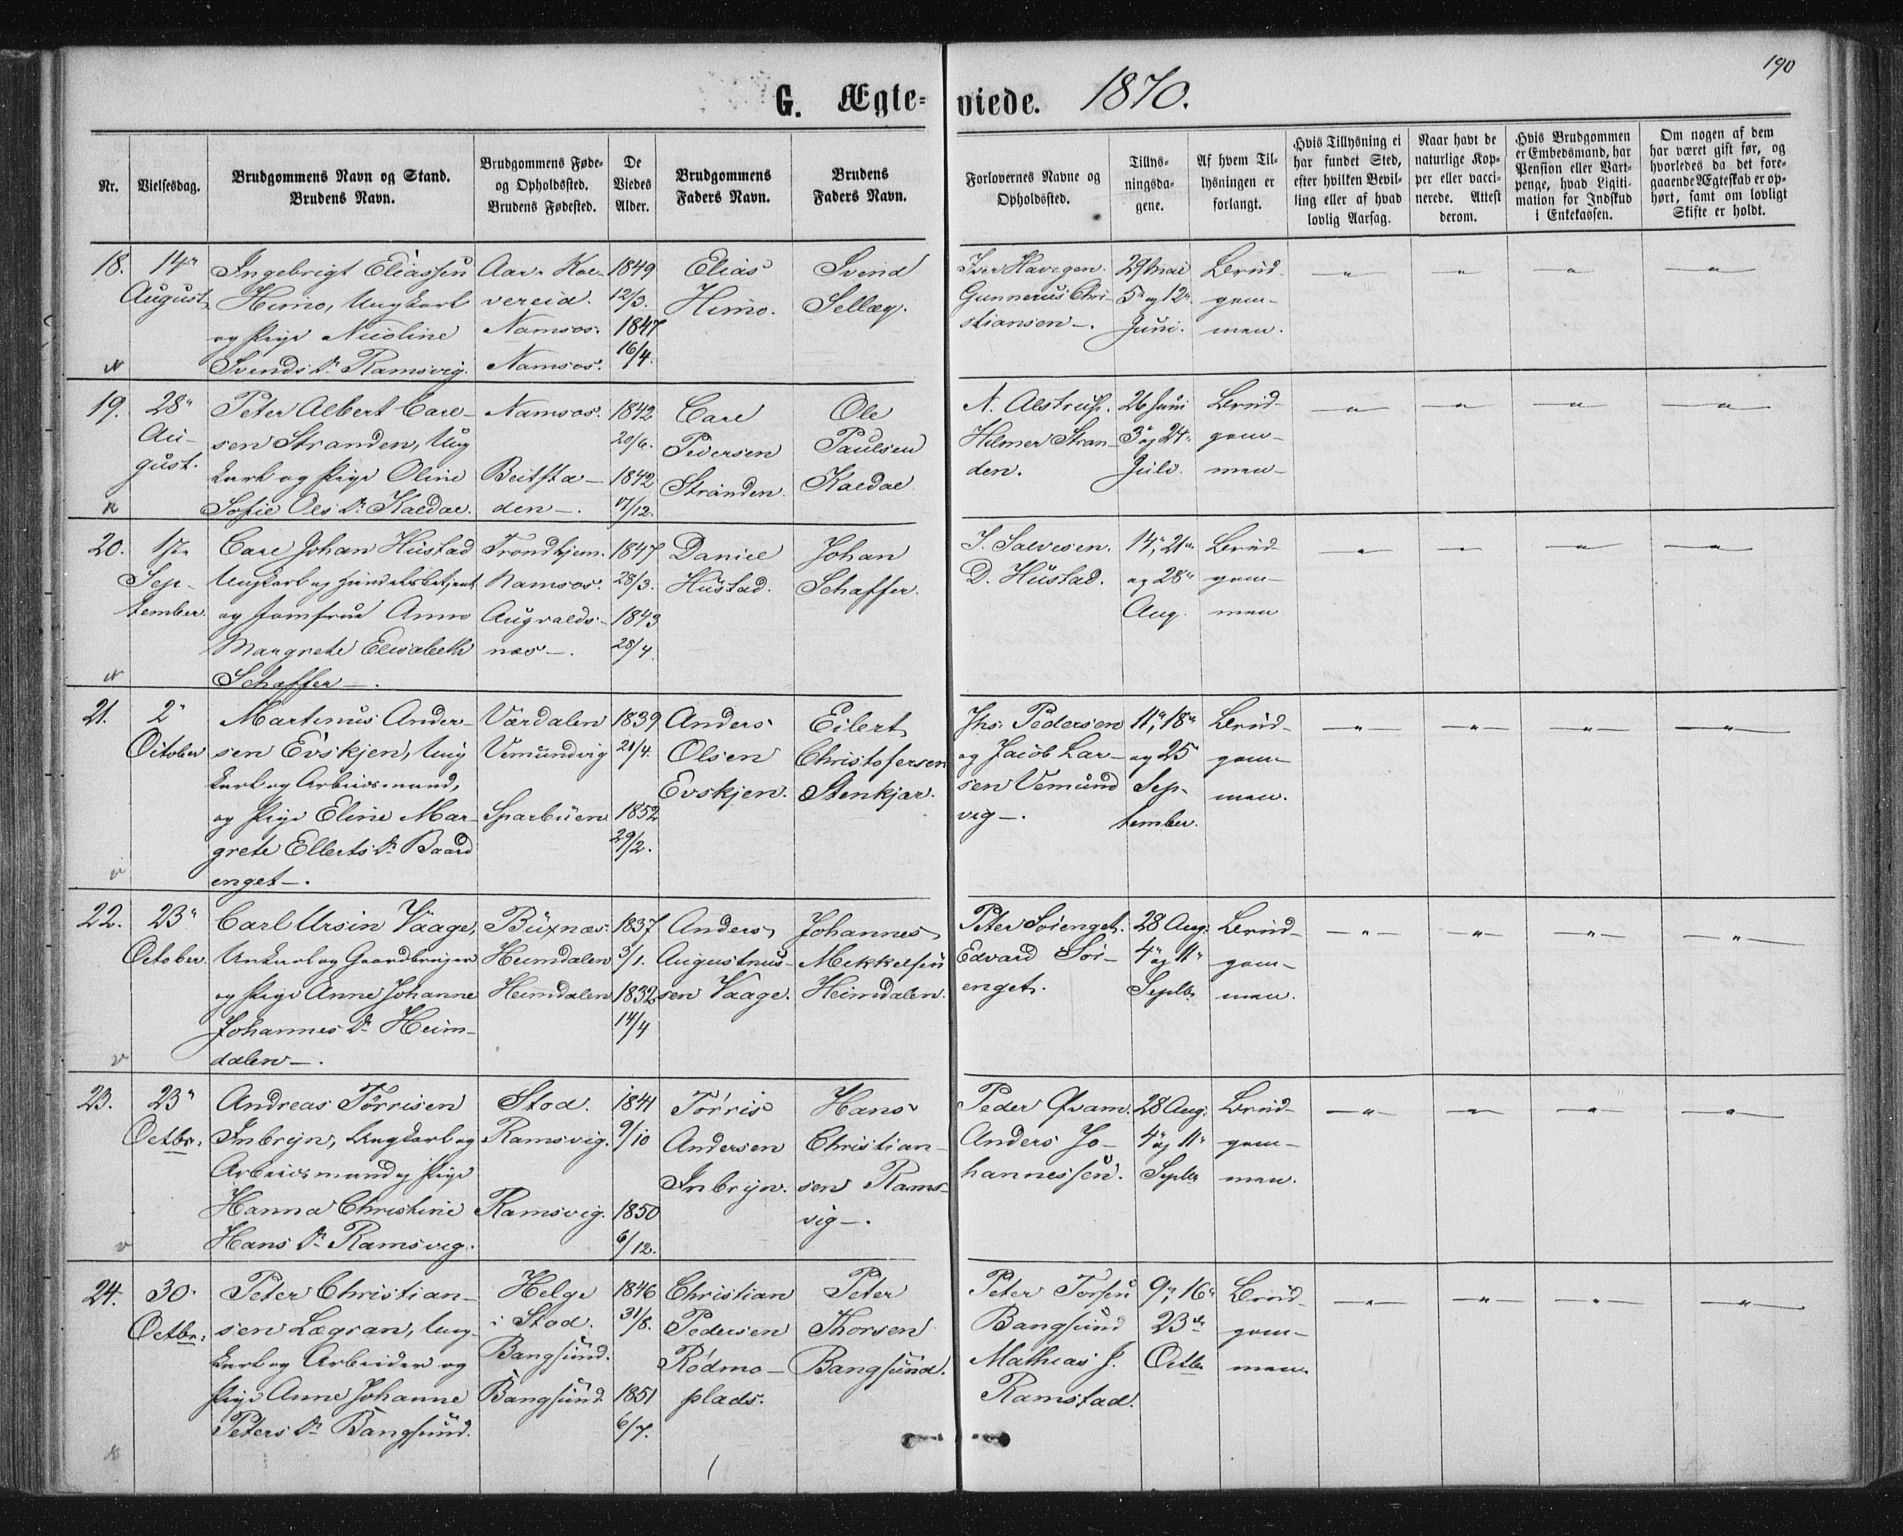 190
G. Ægte-viede. 1870.
Nr.
Vielsesdag.
Brudgommens Navn og Stand.
Brudens Navn.
Brudgommens Føde-
og Opholdssted.
Brudens Fødested.
De
Viedes
Alder.
Brudgommens
Faders Navn.
Brudens
Faders Navn.
Forlovernes Navne og
Opholdssted.
Tillys-
ningsda-
gene.
Af hvem Til-
lysningen er
forlangt.
Hvis Tillysning ei
har fundet Sted,
efter hvilken Bevil-
ling eller af hvad
lovlig Aarsag.
Naar havt de
naturlige Kop-
per eller vacci-
nerede. Attest
derom.
Hvis Brudgommen
er Embedsmand, har
Pension eller Vart-
penge, hvad Ligiti-
mation for Indskud
i Enkekassen.
Om nogen af dem
har været gift før, og
hvorledes da det fore-
gaaende Ægteskab er op-
hørt, samt om lovligt
Skifte er holdt.
18.
14"
August
Ingebrigt Eliassen
Himo, Ungkarl
og Pige Nicoline
Svends Dr. Ramsvig.
vereid.
Namsos.
Namsos.
1849
12/3.
1847
16/4.
Elias
Himo.
Svend
Sellæg.
Iver Havigen.
Gunnerius Chri-
stiansen -.
29 Mai
5" og 12"
Juni.
Brud-
gom-
men.
19.
28"
Au-
gust.
Peter Albert Carl-
sen Stranden, Ung
karl og Pige Oline
Sofie Ols Dr. Kaldal.
Namsos.
Beitsta-
den -.
1842
20/6.
1842
17/12.
Carl
Pedersen
Stranden.
Ole
Paulsen
Kaldal
N. Alstrup.
Hilmer Stran-
den.
26 Juni
3" og 24"
Juli.
Brud-
gom-
men-
20.
Sep-
tember.
Carl Johan Hustad
Ungkarl og Handelsbetjent
og Jomfrue Anna
Margrete Elisabeth
Schaffer -.
Trondhjem.
Namsos.
Augvalds-
næs -.
1847
28/3.
1843
28/4.
Daniel
Hustad.
Johan
Schaffer.
I. Salvesen.
D. Hustad.
14", 21"
og 28"
Aug.
Brud-
gom-
men
21.
2"
October
Martinus Ander-
sen Evskjen, Ung
karl og Arbeidsmand,
og Pige Eline Mar-
grete Ellerts Dr. Baard
enget -.
Værdalen
Vemundvig
Sparbuen
1839
21/4.
1852
29/2.
Anders
Olsen
Evskjen.
Eilert
Christofersen
Stenkjær.
Jhs. Pedersen
og Jacob Lar-
sen Vemund
vig -.
11", 18"
og 25
Sep-
tember.
Brud-
gom-
men.
22.
23"
October.
Carl Ursin Vaage,
Unkarl og Gaardbruger
og Pige Anne Johanne
Johannes Dr. Heim-
dalen -.
Buxnæs.
Heimdalen
Heimdalen
1837
3/1.
1832
14/4
Anders
Augustinus-
sen Vaage.
Johannes
Mikkelsen
Heimdalen.
Peter Søienget.
Edvard Søi-
enget.
28 Aug.
4" og 11"
Septbr
Brud-
gom-
men.
23.
23"
Octbr.
Andreas Tørrisen
Inbryn, Ungkarl og
Arbeidsmand og Pige
Hanna Christine
Hans Dr. Ramsvig.
Stod.
Ramsvig.
Ramsvig.
1841
9/10
1850
6/12.
Tørris
Andersen
Inbryn.
Hans
Christian-
sen Rams-
vig -.
Peder Qvam.
Anders Jo-
hannessen.
28 Aug.
4" og 11"
Septbr
Brud-
gom-
men.
24.
30"
Octbr.
Peter Christian-
sen Lægran, Ung-
karl og Arbeider og
Pige Anne Johanne
Peters Dr. Bangsund.
Helge
i Stod.
Bangsund.
Bangsund.
1846
31/8.
1851
6/7.
Christian
Pedersen
Rødmo-
plads.
Peter
Thorsen
Bangsund.
Peter Torsen
Bangsund
Mathias J.
Ramstad.
9", 16"
23de
Octbr
Brud-
gom-
men